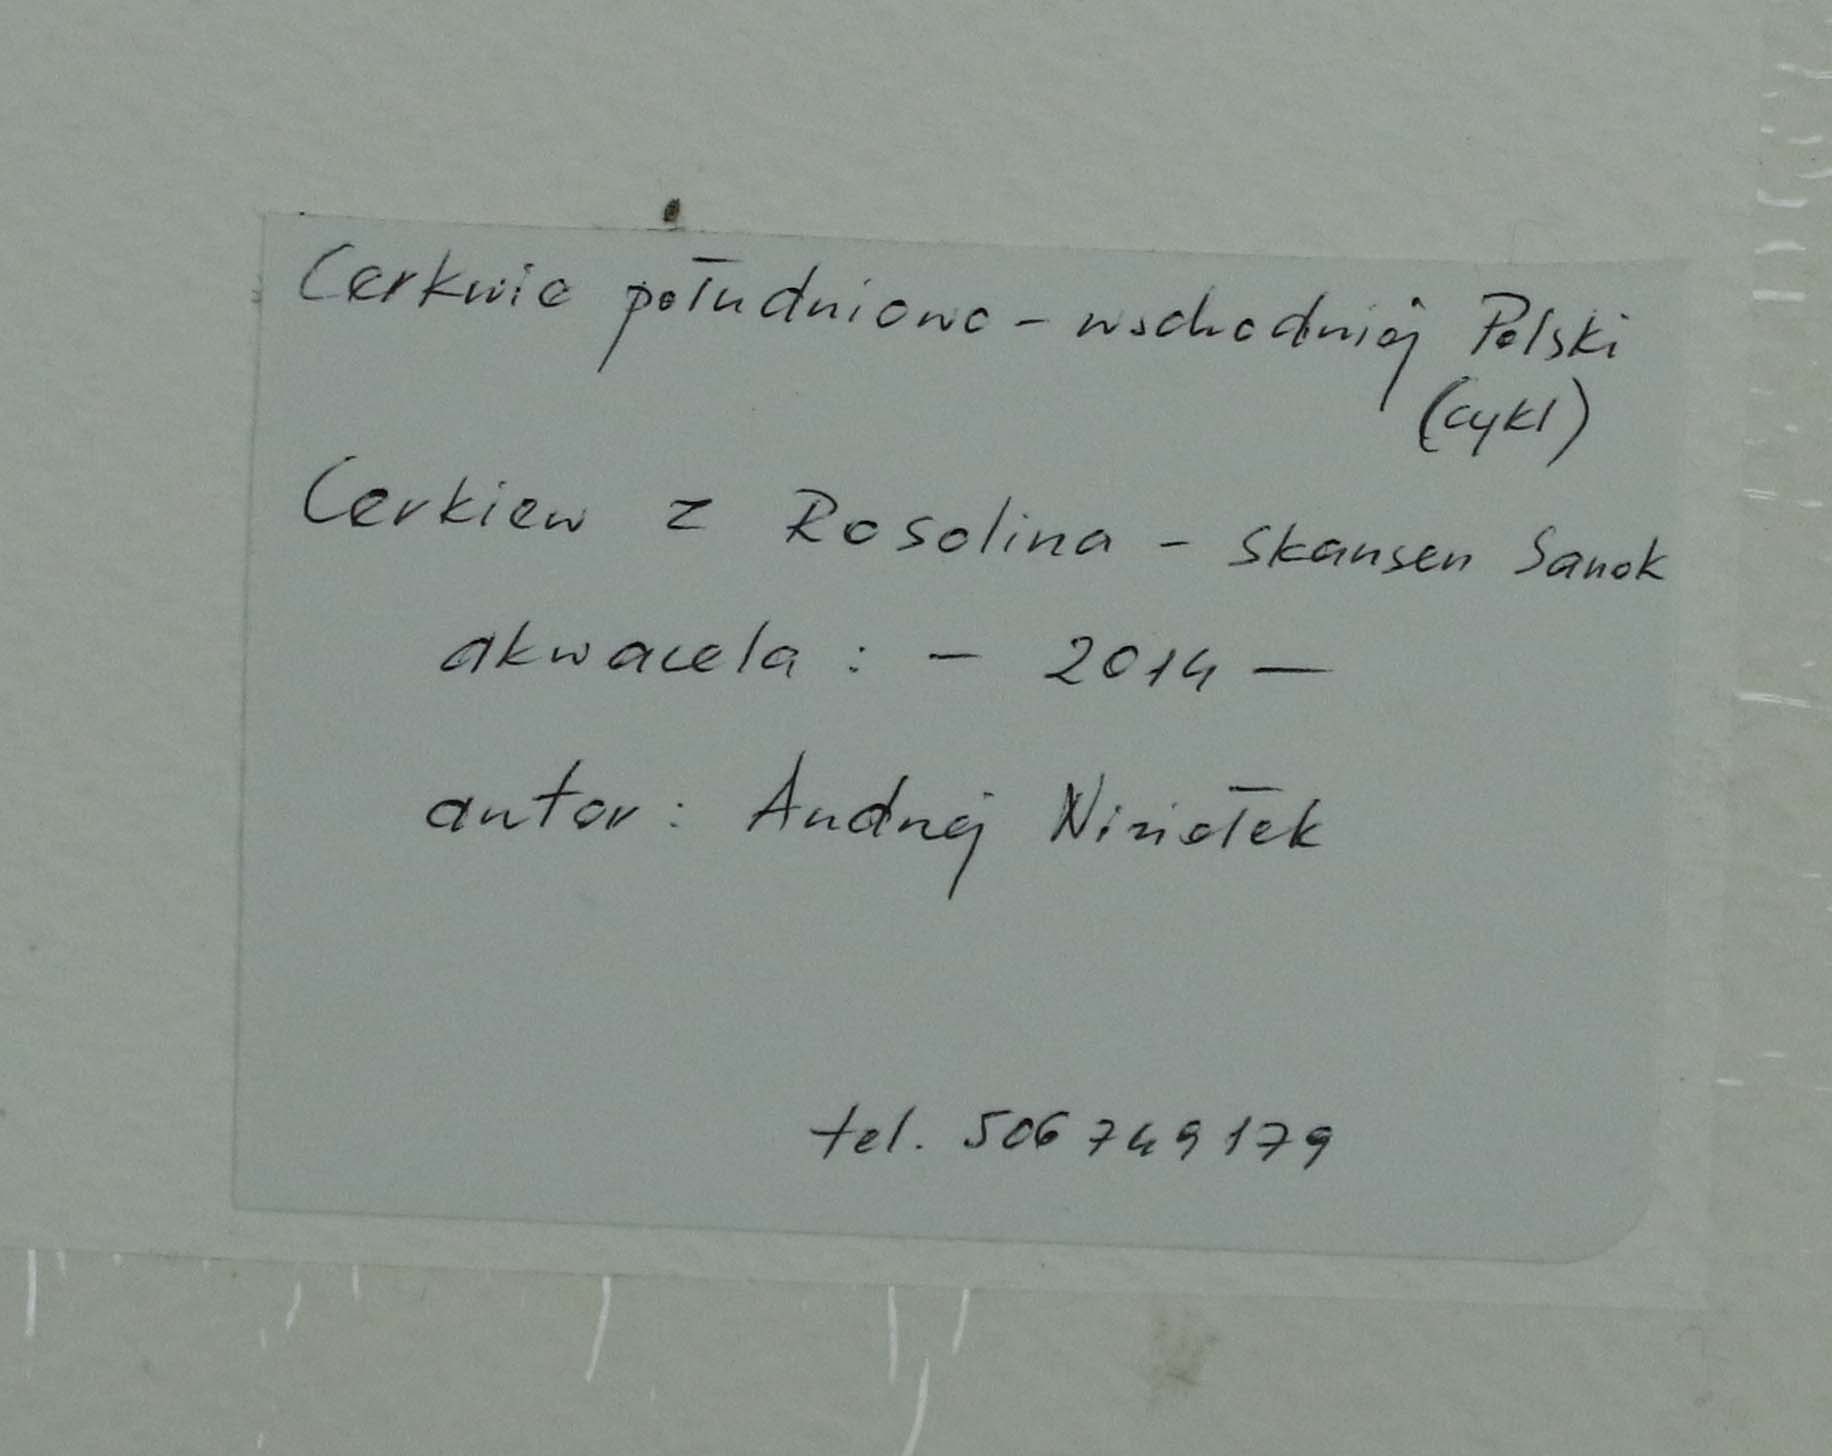 Cerkwie południowo - wschodniej Polski
(cykl)
Cerkiew z Rosolina - Skansen Sanok
akwarela : - 2014 -
autor : Andrzej Niziołek
tel. 506 749 179